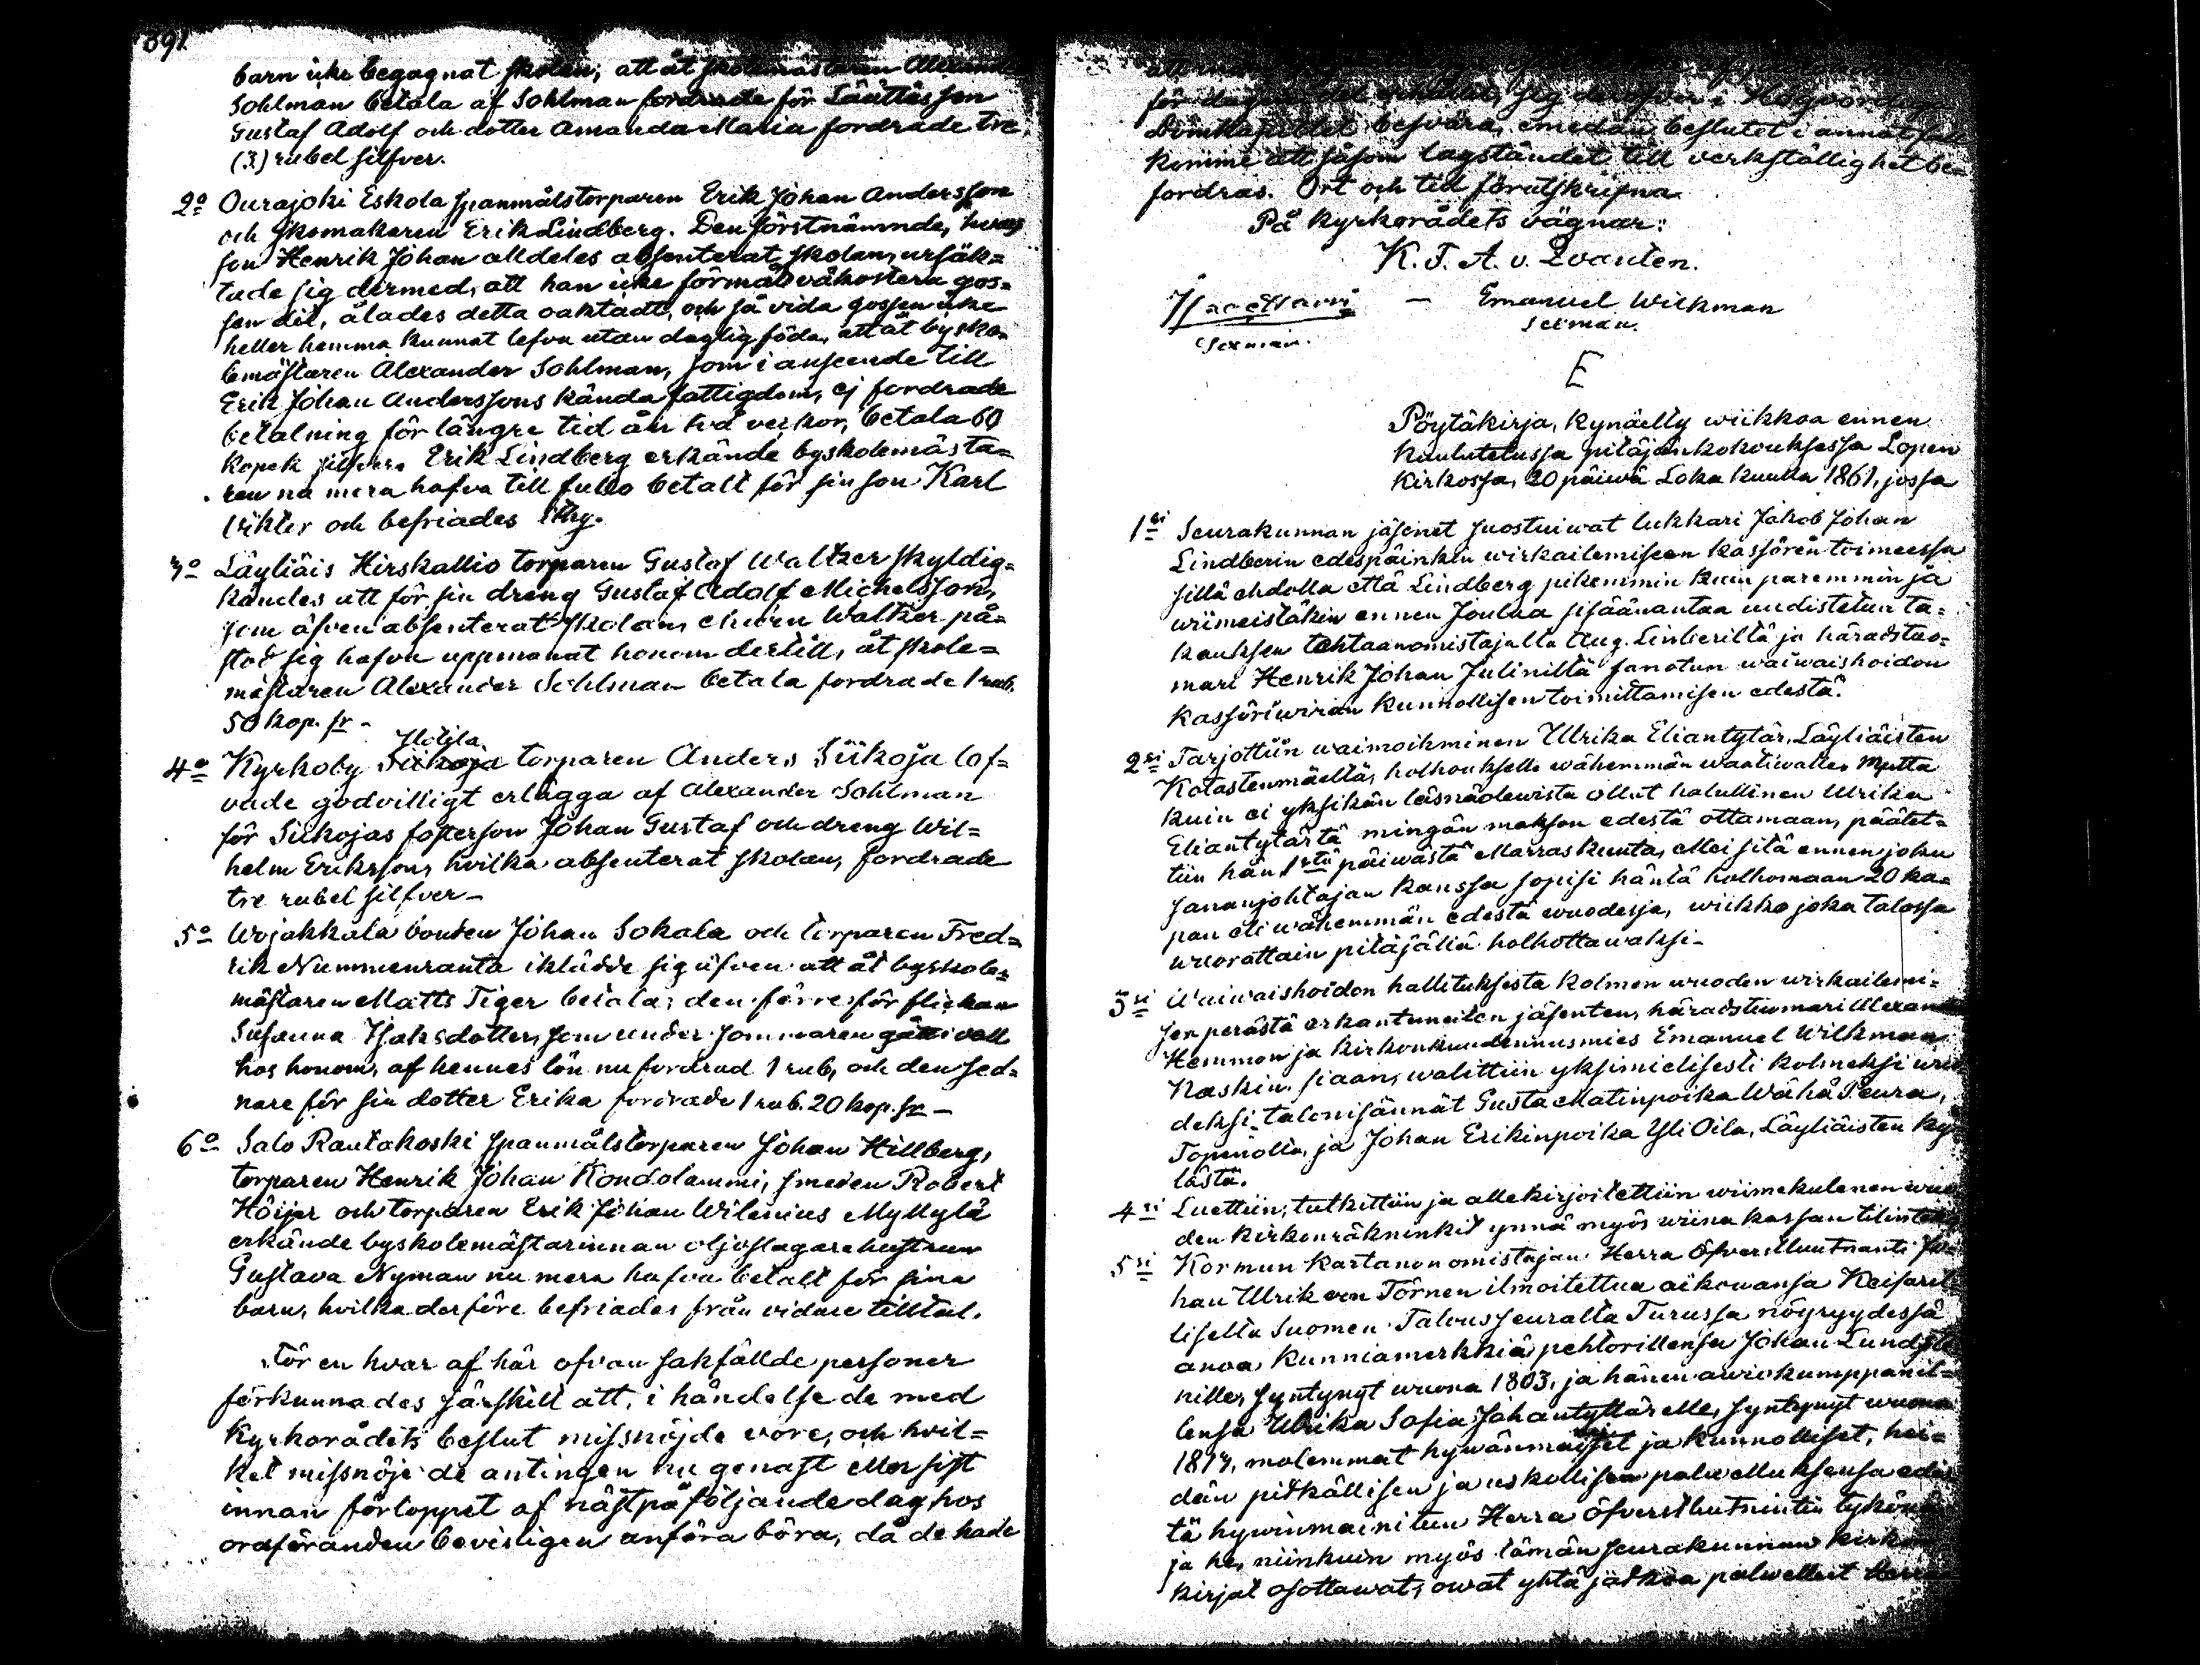 391
barn icke begagnat skolan; att åt skolmästaren Alexander
Sohlman betala af Sohlman fordrade för Läättäs son
Gustaf Adolf och dotter Amanda Maria fordrade tre
(3) rubel silfver.
2o Ourajoki Eskola spanmålstorparen Erik Johan Andersson
och skomakaren Erik Lindberg. Den förstnämnde, hvars
son Henrik Johan alldeles absenterat skolan, ursäk=
tade sig dermed, att han icke förmått våkostera gos=
sen dit, ålades detta oaktadt, och så vida gossen icke
heller hemma kunnat lefva utan daglig föda, att åt bysko=
lemästaren Alexander Sohlman, som i anseende till
Erik Johan Anderssons kända fattigdom, ej fordrade
betalning för längre tid än två veckor, betala 60
kopek silfver. Erik Lindberg erkände byskolemästa=
ren nu mera hafva till fullo betalt för sin son Karl
Viktor och befriades
3o Läyliäis Hirskallio torparen Gustaf Waltzer skyldig=
kändes att för sin dreng Gustaf Adolf Michelsson,
som äfven absenterat skolan, churu Waltzer på=
stod sig hafva uppmanat honom dertill, åt skole=
mästaren Alexander Sohlman betala fordrade 1 rub.
50 kop. sr -
Heitila
4o Kyrkoby Siikoja torparen Anders Siikoja lof=
vade godvilligt erlägga af Alexander Sohlman
för Siikojas fosterson Johan Gustaf och dreng Wil=
helm Eriksson, hvilka absenterat skolan, fordrade
tre rubel silfver -
5o Wojakkala bonden Johan Sokala och torparen Fred=
rik Nummenranta iklädde sig äfven att åt byskole=
mästaren Matts Tiger betala; den förre för flickan
Susanna Isaksdotter, som under sommaren gått i vall
hos honom, af hennes lön nu fordrad 1 rub, och den sed=
nare för sin dotter Erika fordrade 1 rub. 20 kop. sr -
6o Salo Rautakoski spanmålstorparen Johan Hillberg,
torparen Henrik Johan Kondolammi, smeden Robert
Höijer och torparen Erik Johan Wilenius Myllylä
erkände byskolemästarinnan oljeslagarehustrun
Gustava Nyman nu mera hafva betalt för sina
barn, hvilka derföre befriades från vidare tilltal.
För en hvar af här ofvan sakfällde personer
förkunnades särskilt att, i händelse de med
kyrkorådets beslut missnöjde vore, och hvil=
ket missnöje de antingen nu genast eller sist
innan förloppet af nästpåföljande dag hos
ordföranden bevisligen anföra böra, då de hade
att
för dagen det erhållit, sig deröfver i Högvördiga
Domkapitlet besvära, emedan beslutet i annat fall
komme att såsom lagståndet till verkställighet be=
fordras. Ort och tid förutskrifna.
På kyrkorådets vägnar:
K. F. A. v. Qvanten.
- Emanuel Wilkman
Sexman. Sexman.
E
Pöytäkirja, kynäelty wiikkoa ennen
kuulutetussa pitäjänkokouksessa Lopen
kirkossa, 20 päiwä Loka kuuta 1861, jossa
1si Seurakunnan jäsenet suostuiwat lukkari Jakob Johan
Lindberin edespäinkin wirkailemiseen kassören toimeessa
sillä ehdolla että Lindberg pikemmin kuin paremmin ja
wiimeistäkin ennen Joulua sisäänantaa uudistetun ta=
kauksen tehtaanomistajalta Aug. Linberiltä ja häradstuo=
mari Henrik Johan Juliniltä sanotun waiwaishoidon
kassöriwiran kunnollisen toimittamisen edestä.
2si Tarjottiin waimoihminen Ulrika Eliantytär, Läyliäisten
Kotastenmäeltä, holhoukselle wähemmän waatiwalle. Mutta
kuin ei yksikän läsnäolewista ollut halullinen Ulrika
Eliantytärtä mingän makson edestä ottamaan, päätet=
tiin hän 1stä päiwästä Marraskuuta, ellei sitä ennen joku
Sananjohtajan kanssa sopisi häntä holhomaan 20 ka=
pan eli wähemmän edestä wuodessa, wiikko joka talossa
wuorottain pitäjältä holhottawaksi -
3si Waiwaishoidon hallituksesta kolmen wuoden wirkailemi=
sen perästä erkantuneiden jäsenten, häradstuomari Alexand
Hemmon ja kirkonkuudennusmies Emanuel Wilkman
Kaskin siaan, walittiin yksimielisesti kolmeksi wuo
deksi talonisännät Gusta Matinpoika Wähä Peura,
Topenolta, ja Johan Erikinpoika Yli Oila, Läyliäisten ky=
lästä.
4si Luettiin, tutkittiin ja allekirjoitettiin wiimekulenen wuo
den kirkonräkninkit ynnä myös wiina kassan tilinteko
5si Kormun kartanon omistajan Herra Öfverstluutnanti Jo=
han Ulrik von Törnen ilmoitettua aikowansa Keisaril
liselta Suomen Talousseuralta Turussa nöyryydessä
anoa kunniamerkkiä pehtorillensa Johan Lundste
nille, syntynyt wuona 1803, ja hänen awiokumppanil=
lensa Ulrika Sofia Johantyttärelle, syntynyt wuona
1817, molemmat hywänmaiset ja kunnolliset, hei=
dän pitkällisen ja uskollisen palwelluksensa edes
tä hywinmainitun Herra Öfverstlutnintin tykönä
ja he, niinkuin myös tämän seurakunnan kirkon
kirjat osottawat, owat yhtä jatkoa palwellut Herra